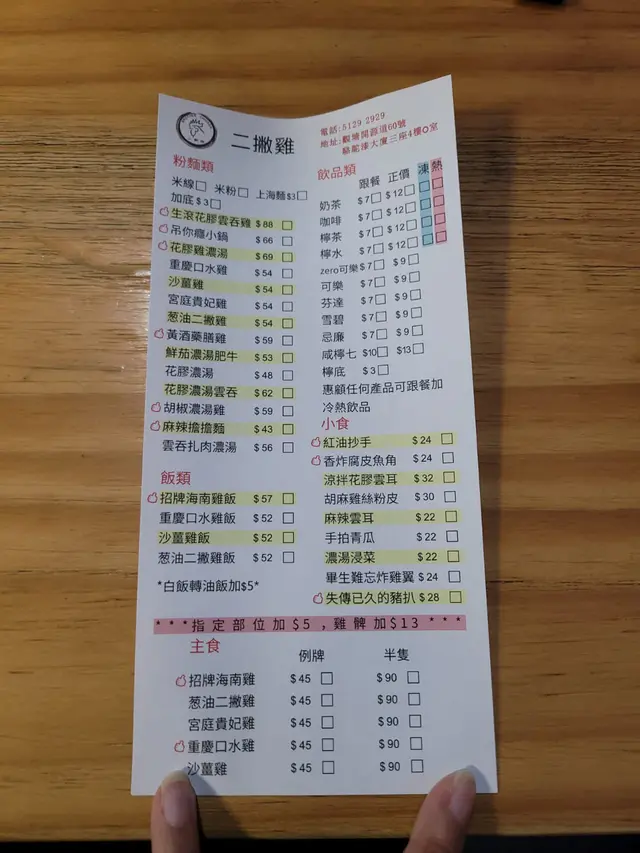 二撇雞
電話:5129 2929
地址:觀塘開源道60號
駱駝漆大廈三座4樓O室
粉麵類
米線 米粉 上海麵$3
加底$3
生滾花膠雲吞雞 $88
吊你癮小鍋 $66
花膠雞濃湯 $69
重慶口水雞 $54
沙薑雞 $54
宮庭貴妃雞 $54
葱油二撇雞 $54
黃酒藥膳雞 $59
鮮茄濃湯肥牛 $53
花膠濃湯 $48
花膠濃湯雲吞 $62
胡椒濃湯雞 $59
麻辣擔擔麵 $43
雲吞扎肉濃湯 $56
飯類
招牌海南雞飯 $57
重慶口水雞飯 $52
沙薑雞飯 $52
葱油二撇雞飯 $52
*白飯轉油飯加$5*
飲品類
跟餐 正價 凍 熱
奶茶 $7 $12
咖啡 $7 $12
檸茶 $7 $12
檸水 $7 $12
zero可樂 $7 $9
可樂 $7 $9
芬達 $7 $9
雪碧 $7 $9
忌廉 $7 $9
咸檸七 $10 $13
檸底 $3
惠顧任何產品可跟餐加
冷熱飲品
小食
紅油抄手 $24
香炸腐皮魚角 $24
涼拌花膠雲耳 $32
胡麻雞絲粉皮 $30
麻辣雲耳 $22
手拍青瓜 $22
濃湯浸菜 $22
畢生難忘炸雞翼 $24
失傳已久的豬扒 $28
***指定部位加$5,雞髀加$13***
主食
例牌 半隻
招牌海南雞 $45 $90
葱油二撇雞 $45 $90
宮庭貴妃雞 $45 $90
重慶口水雞 $45 $90
沙薑雞 $45 $90